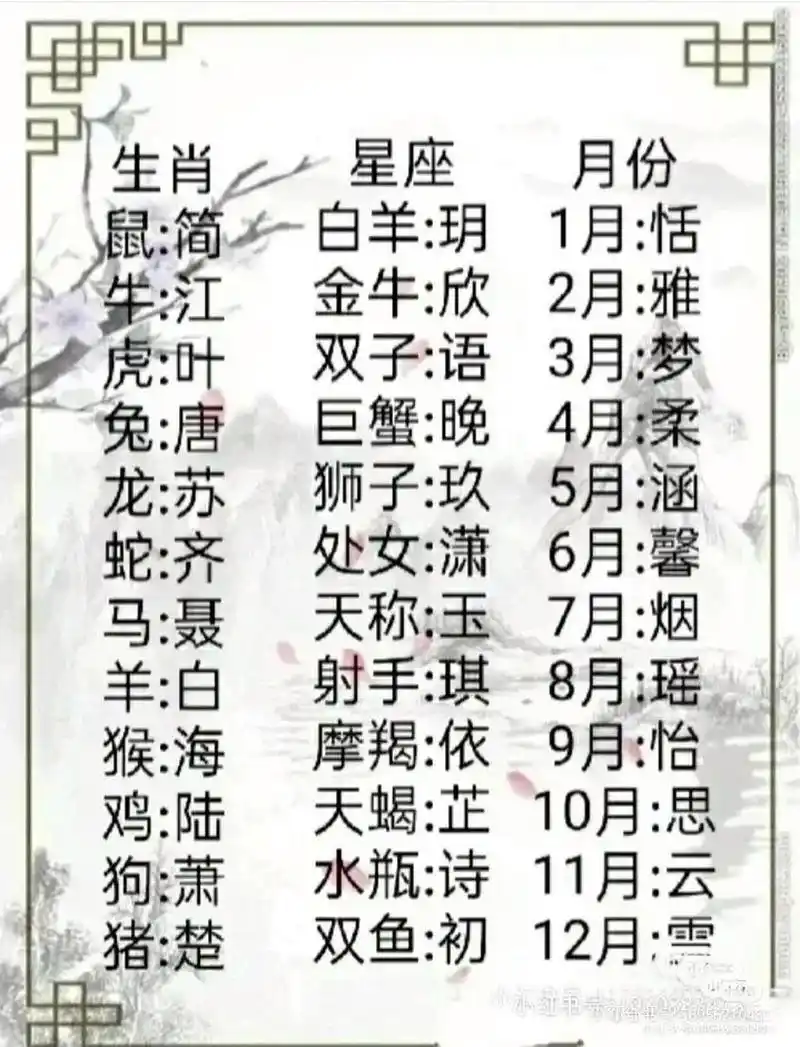 生肖 星座 月份
鼠:简 白羊:玥 1月:恬
牛:江 金牛:欣 2月:雅
虎:叶 双子:语 3月:梦
兔:唐 巨蟹:晚 4月:柔
龙:苏 狮子:玖 5月:涵
蛇:齐 处女:潇 6月:馨
马:聂 天称:玉 7月:烟
羊:白 射手:琪 8月:瑶
猴:海 摩羯:依 9月:怡
鸡:陆 天蝎:芷 10月:思
狗:萧 水瓶:诗 11月:云
猪:楚 双鱼:初 12月:雪